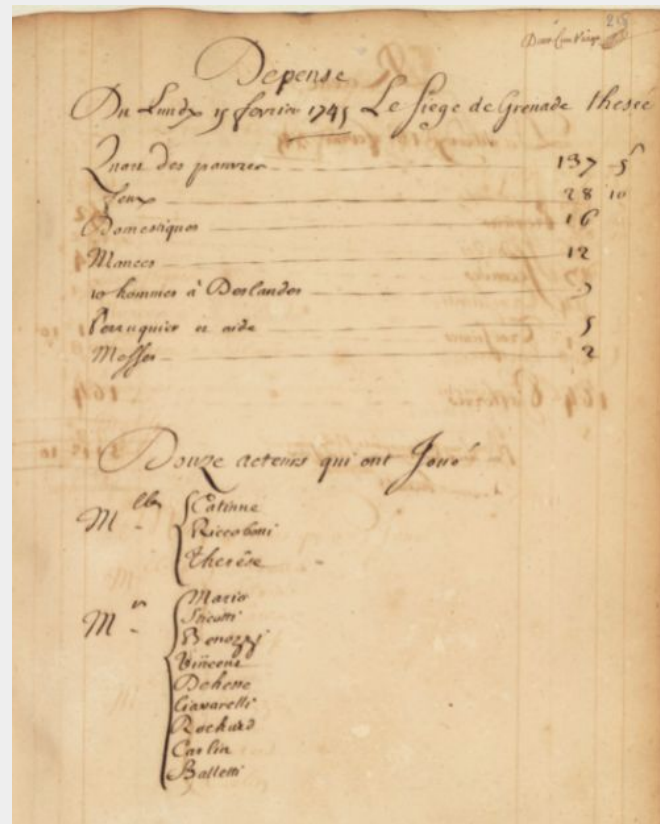 215
Depense
Du Lundy 15 fevrier 1745 Le siege de Grenade thesée
Quart des pauvres 137 5ˢ
feux 28 10
Domestiques 16
Mances 12
10 hommes à Deslandes 5
Perruquier et aide 5
Messes 2
Douze acteurs qui ont Joué
Mˡˡᵉˢ
Catinne
Riccoboni
Therèse
Mʳˢ
Mario
Sticotti
Benozzi
Vincent
Dehesse
Ciavarelli
Rochard
Carlin
Balletti